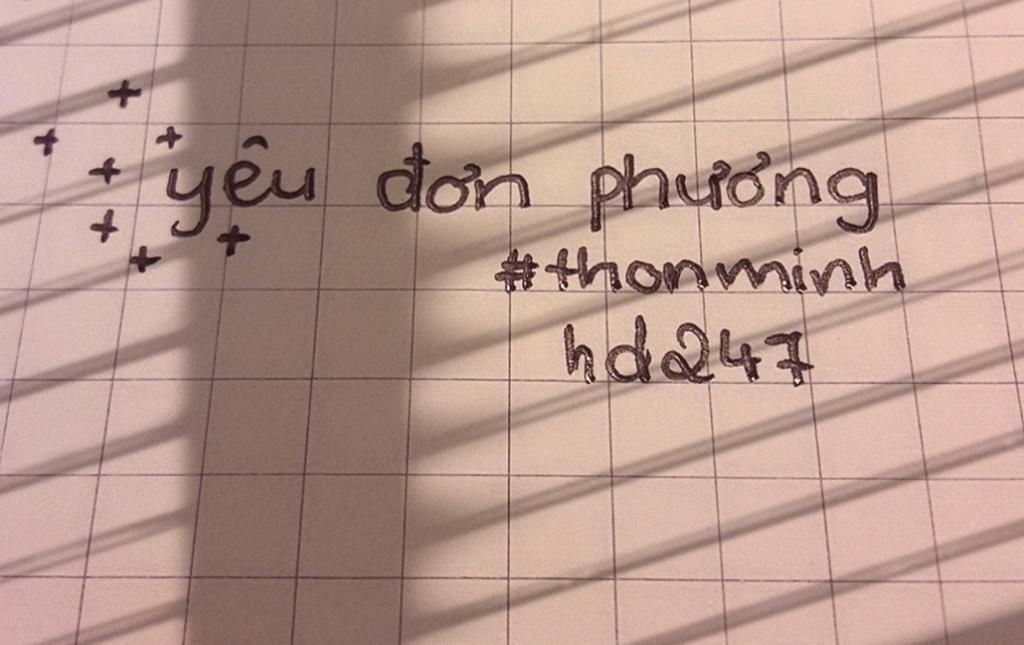 yêu đơn phương
#thonminh
hd247